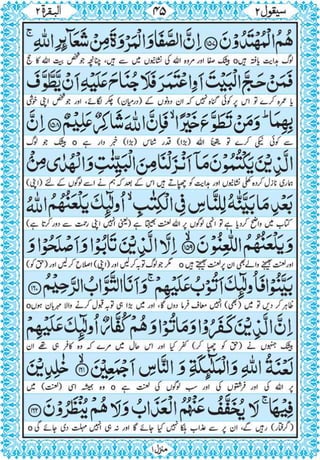 سيقول ٢
٣٥
البقرة ٢
هُمُ الْمُهْتَدُوْنَ ۝١٥٧ اِنَّ الصَّفَا وَالْمَرْوَةَ مِنْ شَعَآئِرِ اللّٰهِ ۚ
ہدایت یافتہ ہیں ۝ بیشک صفا اور مروہ اللہ کی نشانیوں میں سے ہیں، چنانچہ جو شخص بیت اللہ کا حج
فَمَنْ حَجَّ الْبَيْتَ اَوِ اعْتَمَرَ فَلَا جُنَاحَ عَلَيْهِ اَنْ يَّطَّوَّفَ
یا عمرہ کرے تو اس پر کوئی گناہ نہیں کہ ان دونوں کے (درمیان) چکر لگائے، اور جو شخص اپنی خوشی
بِهِمَا ؕ وَمَنْ تَطَوَّعَ خَيْرًا ۙ فَاِنَّ اللّٰهَ شَاكِرٌ عَلِيْمٌ ۝١٥٨ اِنَّ
سے کوئی نیکی کرے تو یقیناً اللہ (بڑا) قدر شناس (بڑا) خبر دار ہے ۝ بیشک جو لوگ
الَّذِيْنَ يَكْتُمُوْنَ مَآ اَنْزَلْنَا مِنَ الْبَيِّنٰتِ وَالْهُدٰى مِنْۢ
ہماری نازل کردہ کھلی نشانیوں اور ہدایت کو چھپاتے ہیں اس کے بعد کہ ہم نے اسے لوگوں کے لئے (اپنی)
بَعْدِ مَا بَيَّنّٰهُ لِلنَّاسِ فِي الْكِتٰبِ ۙ اُولٰٓئِكَ يَلْعَنُهُمُ اللّٰهُ
کتاب میں واضح کردیا ہے تو انہی لوگوں پر اللہ لعنت بھیجتا ہے (یعنی انہیں اپنی رحمت سے دور کرتا ہے)
وَيَلْعَنُهُمُ اللّٰعِنُوْنَ ۝١٥٩ اِلَّا الَّذِيْنَ تَابُوْا وَاَصْلَحُوْا وَ
اور لعنت بھیجنے والے بھی ان پر لعنت بھیجتے ہیں ۝ مگر جو لوگ توبہ کر لیں اور (اپنی) اصلاح کر لیں اور (حق کو)
بَيَّنُوْا فَاُولٰٓئِكَ اَتُوْبُ عَلَيْهِمْ ۚ وَاَنَا التَّوَّابُ الرَّحِيْمُ ۝١٦٠
ظاہر کر دیں تو میں (بھی) انہیں معاف فرما دوں گا، اور میں بڑا ہی توبہ قبول کرنے والا مہربان ہوں ۝
اِنَّ الَّذِيْنَ كَفَرُوْا وَمَاتُوْا وَهُمْ كُفَّارٌ اُولٰٓئِكَ عَلَيْهِمْ
بیشک جنہوں نے (حق کو چھپا کر) کفر کیا اور اس حال میں مرے کہ وہ کافر ہی تھے ان
لَعْنَةُ اللّٰهِ وَالْمَلٰٓئِكَةِ وَالنَّاسِ اَجْمَعِيْنَ ۝١٦١ خٰلِدِيْنَ
پر اللہ کی اور فرشتوں کی اور سب لوگوں کی لعنت ہے ۝ وہ ہمیشہ اسی (لعنت) میں
فِيْهَا ۚ لَا يُخَفَّفُ عَنْهُمُ الْعَذَابُ وَلَا هُمْ يُنْظَرُوْنَ ۝١٦٢
(گرفتار) رہیں گے، ان پر سے عذاب ہلکا نہیں کیا جائے گا اور نہ ہی انہیں مہلت دی جائے گی ۝
منزل ١